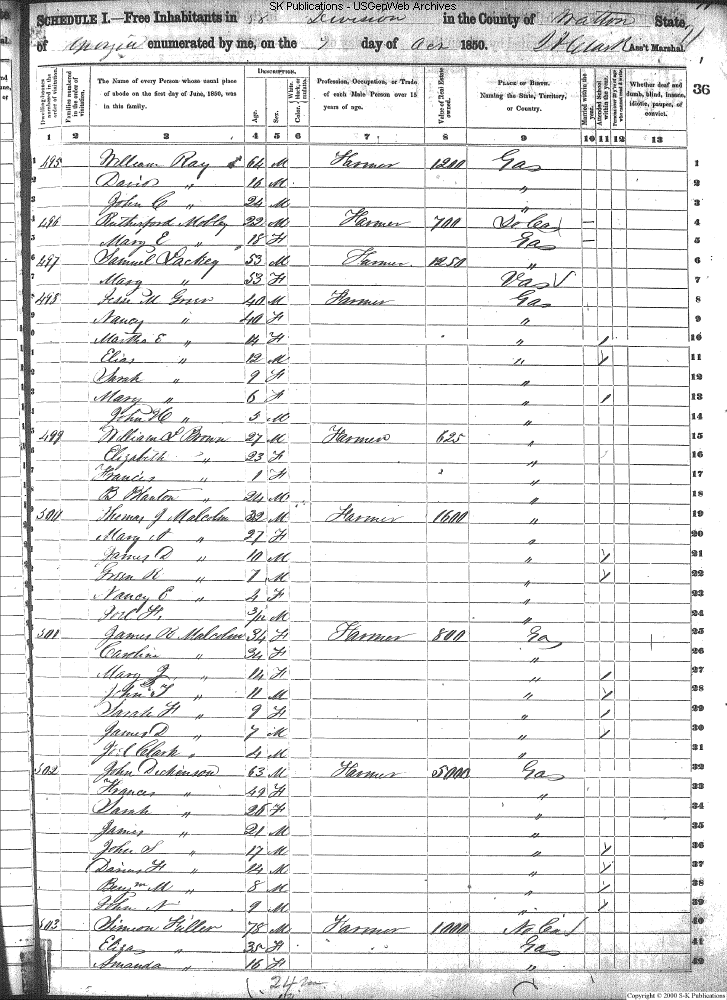 SK Publications - USGenWeb Archives
SCHEDULE I.—Free Inhabitants in 58 Division in the County of Walton State,
of Georgia enumerated by me, on the 7 day of Oct 1850. Clark Ass't Marshal.
36
Dwelling-houses numbered in the order of visitation.
Families numbered in the order of visitation.
The Name of every Person whose usual place of abode on the first day of June, 1850, was in this family.
DESCRIPTION.
Age.
Sex.
Color, White, black, or mulatto.
Profession, Occupation, or Trade of each Male Person over 15 years of age.
Value of Real Estate owned.
PLACE OF BIRTH.
Naming the State, Territory, or Country.
Married within the year.
Attended School within the year.
Whether deaf and dumb, blind, insane, idiotic, pauper, or convict.
1 2 3 4 5 6 7 8 9 10 11 12 13
1 495 William Ray 64 M Farmer 1200 Gas 1
2 " 16 M " 2
3 John C " 24 M " 3
4 496 Rutherford Mobley 22 M Farmer 700 So Ca 4
5 Mary E " 18 F Gas 5
6 497 Samuel Lackey 53 M Farmer 1250 " 6
7 Mary " 53 F Vas 7
8 498 Jesse M 40 M Farmer Gas 8
9 Nancy " 40 F " 9
10 Martha E " 14 F " 10
11 Elias " 12 M " 11
12 Sarah " 9 F " 12
13 Mary " 6 F " 13
14 John H " 3 M " 14
15 499 William L Brown 27 M Farmer 625 " 15
16 Elizabeth " 23 F " 16
17 Francis " 1 F " 17
18 B Blanton " 24 M " 18
19 500 Thomas J Malcolm 32 M Farmer 1600 " 19
20 Mary A " 27 F " 20
21 James D " 10 M " 21
22 Green R " 7 M " 22
23 Nancy E " 4 F " 23
24 M " 24
25 501 James R Malcolm 34 F Farmer 800 Ga 25
26 Caroline " 34 F " 26
27 Mary J " 14 F " 27
28 John T " 11 M " 28
29 Sarah F " 9 F " 29
30 James D " 7 M " 30
31 Clark " 4 M " 31
32 502 John Dickinson 63 M Farmer 5000 Gas 32
33 Frances " 49 F " 33
34 Sarah " 26 F " 34
35 James " 21 M " 35
36 John S " 17 M " 36
37 Darius F " 14 M " 37
38 Benjm M " 8 M " 38
39 John N " 9 M " 39
40 503 Simeon Fuller 78 M Farmer 1000 No Ca 40
41 Eliza " 35 F Gas 41
42 Amanda " 16 F " 42
24 m
Copyright © 2000 S-K Publications